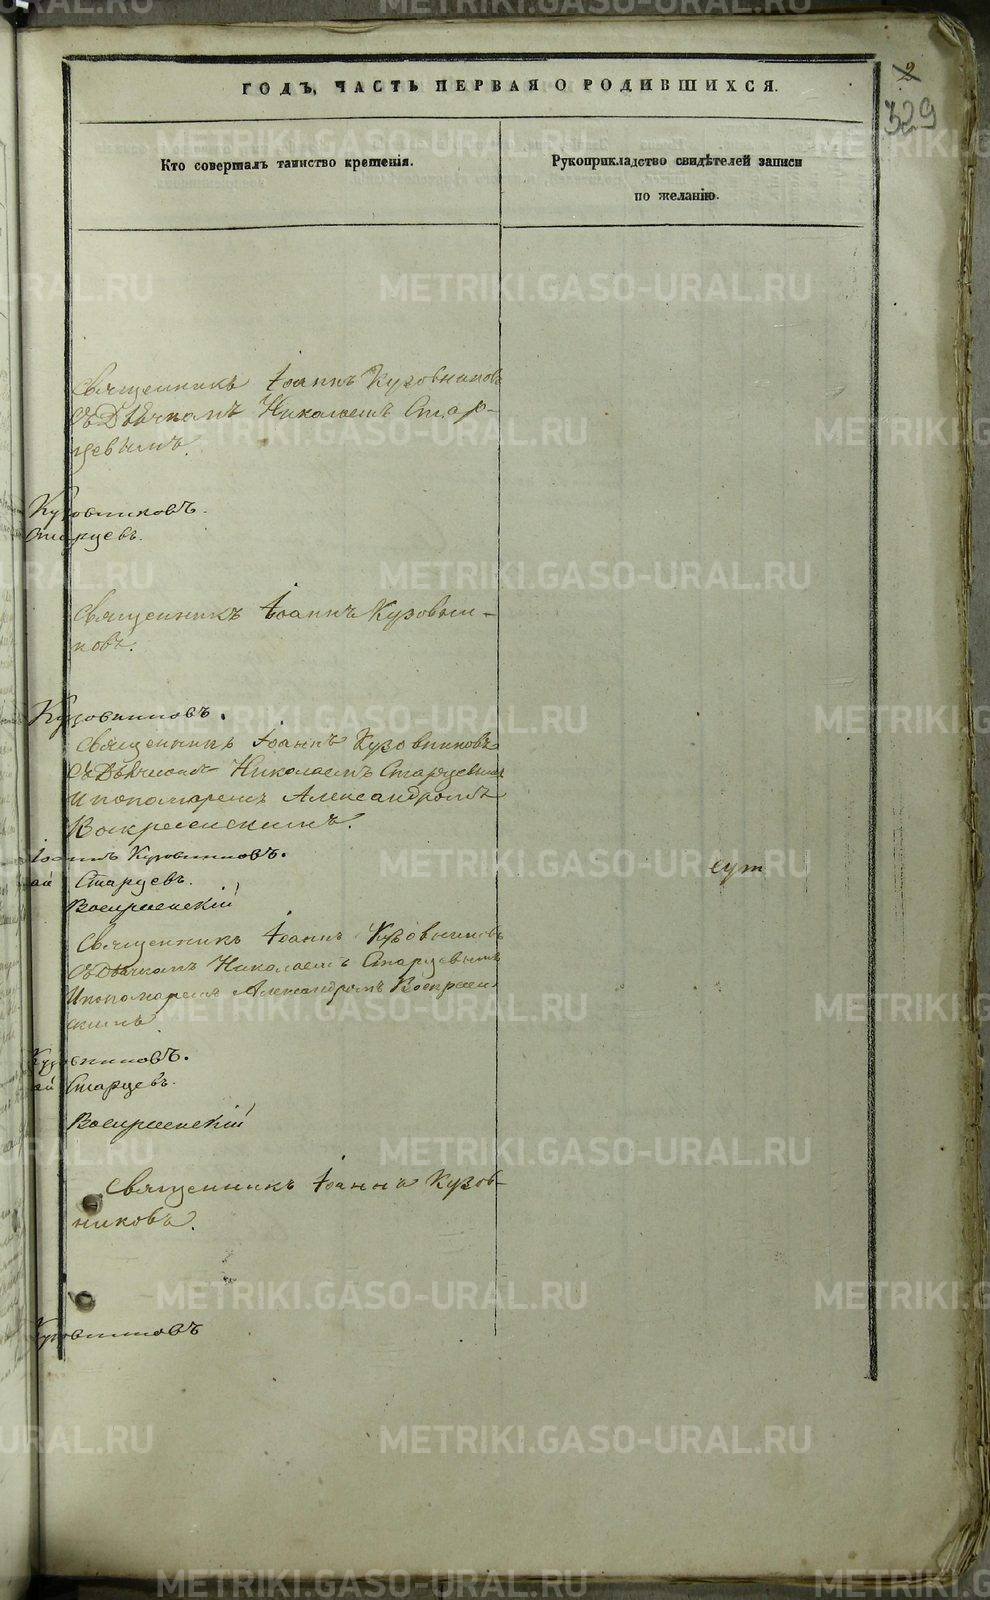 2
329
ГОДЪ, ЧАСТЬ ПЕРВАЯ О РОДИВШИХСЯ.
Кто совершалъ таинство крещенія.
Рукоприкладство свидѣтелей записи
по желанію.
Священникъ Іоаннъ Кузовников
съ Дьячкомъ Николаемъ Стар-
цевымъ.
Кузовниковъ.
Старцевъ.
Священникъ Іоаннъ Кузовни-
ковъ.
Кузовниковъ.
Священникъ Іоаннъ Кузовниковъ
съ Дьячкомъ Николаемъ Старцевымъ
и пономаремъ Александромъ
Воскресенскимъ.
Іоаннъ Кузовниковъ.
ай Старцевъ.
Воскресенскій
сут
Священникъ Іоаннъ Кузовниковъ
съ Дьячкомъ Николаемъ Старцевымъ
и пономаремъ Александромъ Воскресен
скимъ.
Кузовниковъ.
ай Старцевъ.
Воскресенскій
Священникъ Іоаннъ Кузов-
никовъ.
Кузовниковъ
METRIKI.GASO-URAL.RU